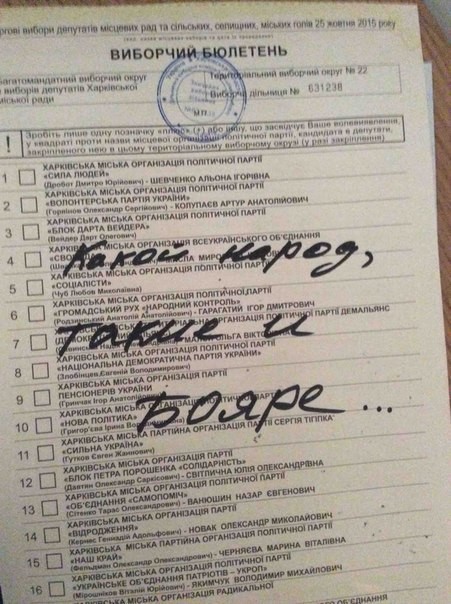 гові вибори депутатів місцевих рад та сільських, селищних, міських голів 25 жовтня 2015 року
ВИБОРЧИЙ БЮЛЕТЕНЬ
багатомандатний виборчий округ
Територіальний виборчий округ № 22
з виборів депутатів Харківської
міської ради
Виборча дільниця № 631238
М.П.
! Зробіть лише одну позначку «плюс» (+) або іншу, що засвідчує Ваше волевиявлення,
у квадраті проти назви місцевої організації політичної партії, кандидата в депутати,
закріпленого нею в цьому територіальному виборчому окрузі (у разі закріплення)
1 ХАРКІВСЬКА МІСЬКА ОРГАНІЗАЦІЯ ПОЛІТИЧНОЇ ПАРТІЇ
«СИЛА ЛЮДЕЙ»
(Дробот Дмитро Юрійович) - ШЕВЧЕНКО АЛЬОНА ІГОРІВНА
2 ХАРКІВСЬКА МІСЬКА ОРГАНІЗАЦІЯ ПОЛІТИЧНОЇ ПАРТІЇ
«ВОЛОНТЕРСЬКА ПАРТІЯ УКРАЇНИ»
(Горвінов Олександр Сергійович) - КОЛУПАЄВ АРТУР АНАТОЛІЙОВИЧ
3 ХАРКІВСЬКА МІСЬКА ОРГАНІЗАЦІЯ ПОЛІТИЧНОЇ ПАРТІЇ
«БЛОК ДАРТА ВЕЙДЕРА»
(Вейдер Дарт Олегович)
4 ХАРКІВСЬКА МІСЬКА ОРГАНІЗАЦІЯ ВСЕУКРАЇНСЬКОГО ОБ'ЄДНАННЯ
Какой народ,
5 ХАРКІВСЬКА МІСЬКА ОРГАНІЗАЦІЯ ПОЛІТИЧНОЇ ПАРТІЇ
«СОЦІАЛІСТИ»
(Чуб Любов Миколаївна)
6 ХАРКІВСЬКА МІСЬКА ОРГАНІЗАЦІЯ ПОЛІТИЧНОЇ ПАРТІЇ
«ГРОМАДСЬКИЙ РУХ «НАРОДНИЙ КОНТРОЛЬ»
(Анатолій Анатолійович) - ГАРАГАТИЙ ІГОР ДМИТРОВИЧ
7 ОРГАНІЗАЦІЯ ПОЛІТИЧНОЇ ПАРТІЇ ДЕМАЛЬЯНС
такие и
8 ХАРКІВСЬКА МІСЬКА ОРГАНІЗАЦІЯ ПОЛІТИЧНОЇ ПАРТІЇ
«НАЦІОНАЛЬНА ДЕМОКРАТИЧНА ПАРТІЯ УКРАЇНИ»
(Злобінцев Євгеній Володимирович)
9 ХАРКІВСЬКА МІСЬКА ОРГАНІЗАЦІЯ ПАРТІЇ
ПЕНСІОНЕРІВ УКРАЇНИ
(Гринчак Ігор Анатолійович)
Бояре ...
10 ХАРКІВСЬКА МІСЬКА ОРГАНІЗАЦІЯ ПОЛІТИЧНОЇ ПАРТІЇ
«НОВА ПОЛІТИКА»
(Григор'єва Ірина
11 ХАРКІВСЬКА МІСЬКА ПАРТІЙНА ОРГАНІЗАЦІЯ ПАРТІЇ СЕРГІЯ ТІГІПКА
«СИЛЬНА УКРАЇНА»
(Гутков Євген Жаннович)
12 ХАРКІВСЬКА МІСЬКА ОРГАНІЗАЦІЯ ПАРТІЇ
«БЛОК ПЕТРА ПОРОШЕНКА «СОЛІДАРНІСТЬ»
(Давтян Олександр Саркісович) - СВІТЛИЧНА ЮЛІЯ ОЛЕКСАНДРІВНА
13 ХАРКІВСЬКА МІСЬКА ОРГАНІЗАЦІЯ ПОЛІТИЧНОЇ ПАРТІЇ
«ОБ'ЄДНАННЯ «САМОПОМІЧ»
(Сітенко Тарас Олександрович) - ВАНЮШИН НАЗАР ЄВГЕНОВИЧ
14 ХАРКІВСЬКА МІСЬКА ОРГАНІЗАЦІЯ ПОЛІТИЧНОЇ ПАРТІЇ
«ВІДРОДЖЕННЯ»
(Кернес Геннадій Адольфович) - НОВАК ОЛЕКСАНДР МИКОЛАЙОВИЧ
15 ХАРКІВСЬКА МІСЬКА ПАРТІЙНА ОРГАНІЗАЦІЯ ПОЛІТИЧНОЇ ПАРТІЇ
«НАШ КРАЙ»
(Фельдман Олександр Олександрович) - ЧЕРНЯЄВА МАРИНА ВІТАЛІЇВНА
16 ХАРКІВСЬКА МІСЬКА ОРГАНІЗАЦІЯ ПОЛІТИЧНОЇ ПАРТІЇ
«УКРАЇНСЬКЕ ОБ'ЄДНАННЯ ПАТРІОТІВ – УКРОП»
(Мірошніков Віталій Юрійович) - ЯКИМЧУК ВОЛОДИМИР МИХАЙЛОВИЧ
ХАРКІВСЬКА МІСЬКА ОРГАНІЗАЦІЯ РАДИКАЛЬНОЇ